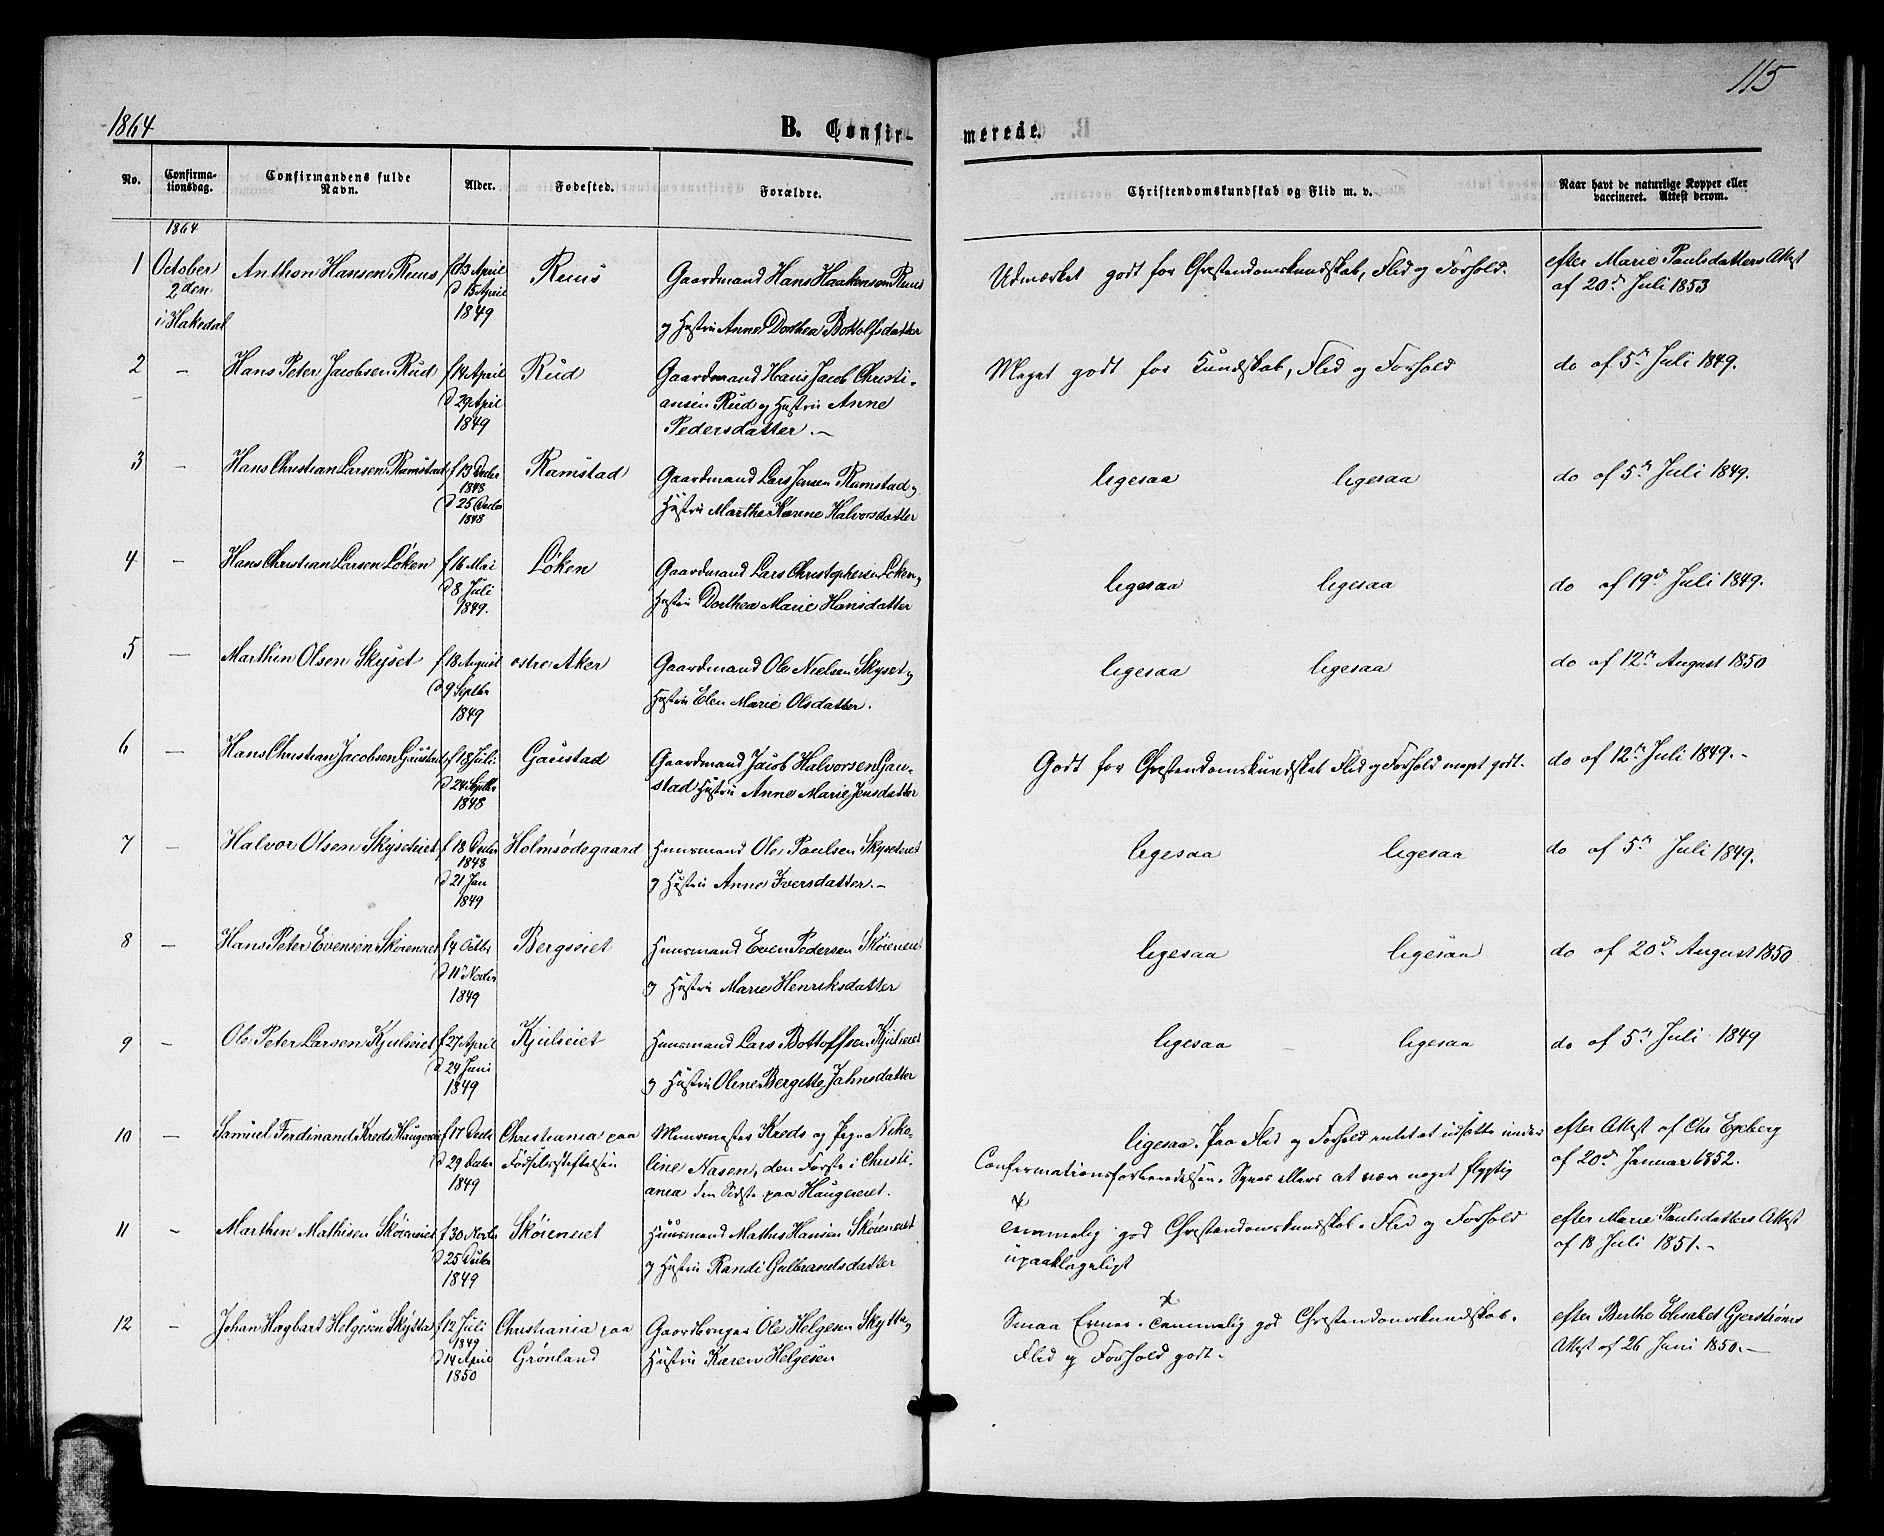 115
1864
B. Confir-
merede.
No.
Confirma-
tionsdag.
Confirmandens fulde
Navn.
Alder.
Fødested.
Forældre.
Christendomskundskab og Flid m. v.
Naar havt de naturlige Kopper eller
vaccineret. Attest derom.
1864
1 October
2den
i Hakedal
Anthon Hansen Ruus
f 13 April
d 15 April
1849
Ruus
Gaardmand Hans Haakensen Ruus
og Hustru Anne Dorthea Bottolfsdatter
Udmærket godt for Christendomskundskab, Flid og Forhold.
efter Marie Paulsdatters Attest
af 20de Juli 1853
2 —
Hans Peter Jacobsen Rud
f 14 April
d 29 April
1849
Rud
Gaardmand Hans Jacob Christi-
ansen Rud og Hustru Anne
Pedersdatter.—
Meget godt for Kundskab, Flid og Forhold
do af 5te Juli 1849.
3 —
Hans Christian Larsen Ramstad
f 13 Decbr
1848
d 25 Decbr
1848
Ramstad
Gaardmand Lars Jensen Ramstad og
Hustru Marthe Karine Halvorsdatter
ligesaa ligesaa
do af 5te Juli 1849.
4 —
Hans Christian Larsen Løken
f 16 Mai
d 8 Juli
1849.
Løken
Gaardmand Lars Christophersen Løken og
Hustru Dorthea Marie Hansdatter
ligesaa ligesaa
do af 19de Juli 1849.
5 —
Marthin Olsen Skyset
f 18 August
d 9 Septbr
1849
østre Aker
Gaardmand Ole Nielsen Skyset og
Hustru Elen Marie Olsdatter.
ligesaa ligesaa
do af 12te August 1850
6 —
Hans Christian Jacobsen Gaustad
f 18 Juli
d 24 Septbr
1848
Gaustad
Gaardmand Jacob Halvorsen Gau-
stad Hustru Anne Marie Jensdatter
Godt for Christendomskundskab Flid og Forhold meget godt.
do af 12te Juli 1849.-
7 —
Halvor Olsen Skyseteiet
f 18 Decbr
1848
d 21 Jan
1849
Holmsødegaard
Huusmand Ole Paulsen Skyseteiet
og Hustru Anne Iversdatter.—
ligesaa ligesaa
do af 5te Juli 1849.
8 —
Hans Peter Evensen Skøieneiet
f 4 Octbr
d 11 Novbr
1849
Bergseiet
Huusmand Even Pedersen Skøieneiet
og Hustru Marie Henriksdatter
ligesaa ligesaa
do af 20de August 1850
9 —
Ole Peter Larsen Kjulseiet
f 27 April
d 24 Juni
1849
Kjulseiet
Huusmand Lars Bottolfsen Kjulseiet
og Hustru Oline Bergitte Jahnsdatter
ligesaa ligesaa
do af 5te Juli 1849
10 —
Samuel Ferdinand Kreds Haugereiet
f 17 Decbr
d 29 Decbr
1849
Christiania paa
Fødselsstiftelsen
Muurmester Kreds og Pige Niko-
line Nasen, den Første i Christi-
ania den Sidste paa Haugereiet.
ligesaa. Paa Flid og Forhold intet at udsætte under
Confirmationsforberedelsen. Synes ellers at være noget flygtig
efter Attest af Chr Egeberg
af 20de Januar 1852.
11 —
Marthin Mathisen Skøieneiet
f 30 Novbr
d 25 Decbr
1849
Skøieneiet
Huusmand Mathis Hansen Skøieneiet
og Hustru Randi Gulbrandsdatter
temmelig god Christendomskundskab. Flid og Forhold
upaaklageligt
efter Marie Paulsdatters Attest
af 18 Juli 1851.-
12 —
Johan Hagbart Helgesen Skytta
f 12 Juli
1849
d 14 April
1850
Christiania paa
Grønland
Gaardbruger Ole Helgesen Skytta og
Hustru Karen Helgesen
Smaa Evner. temmelig god Christendomskundskab.
Flid og Forhold godt.
efter Berthe Elisabet Gjerstiøns
Attest af 26 Juni 1850.—